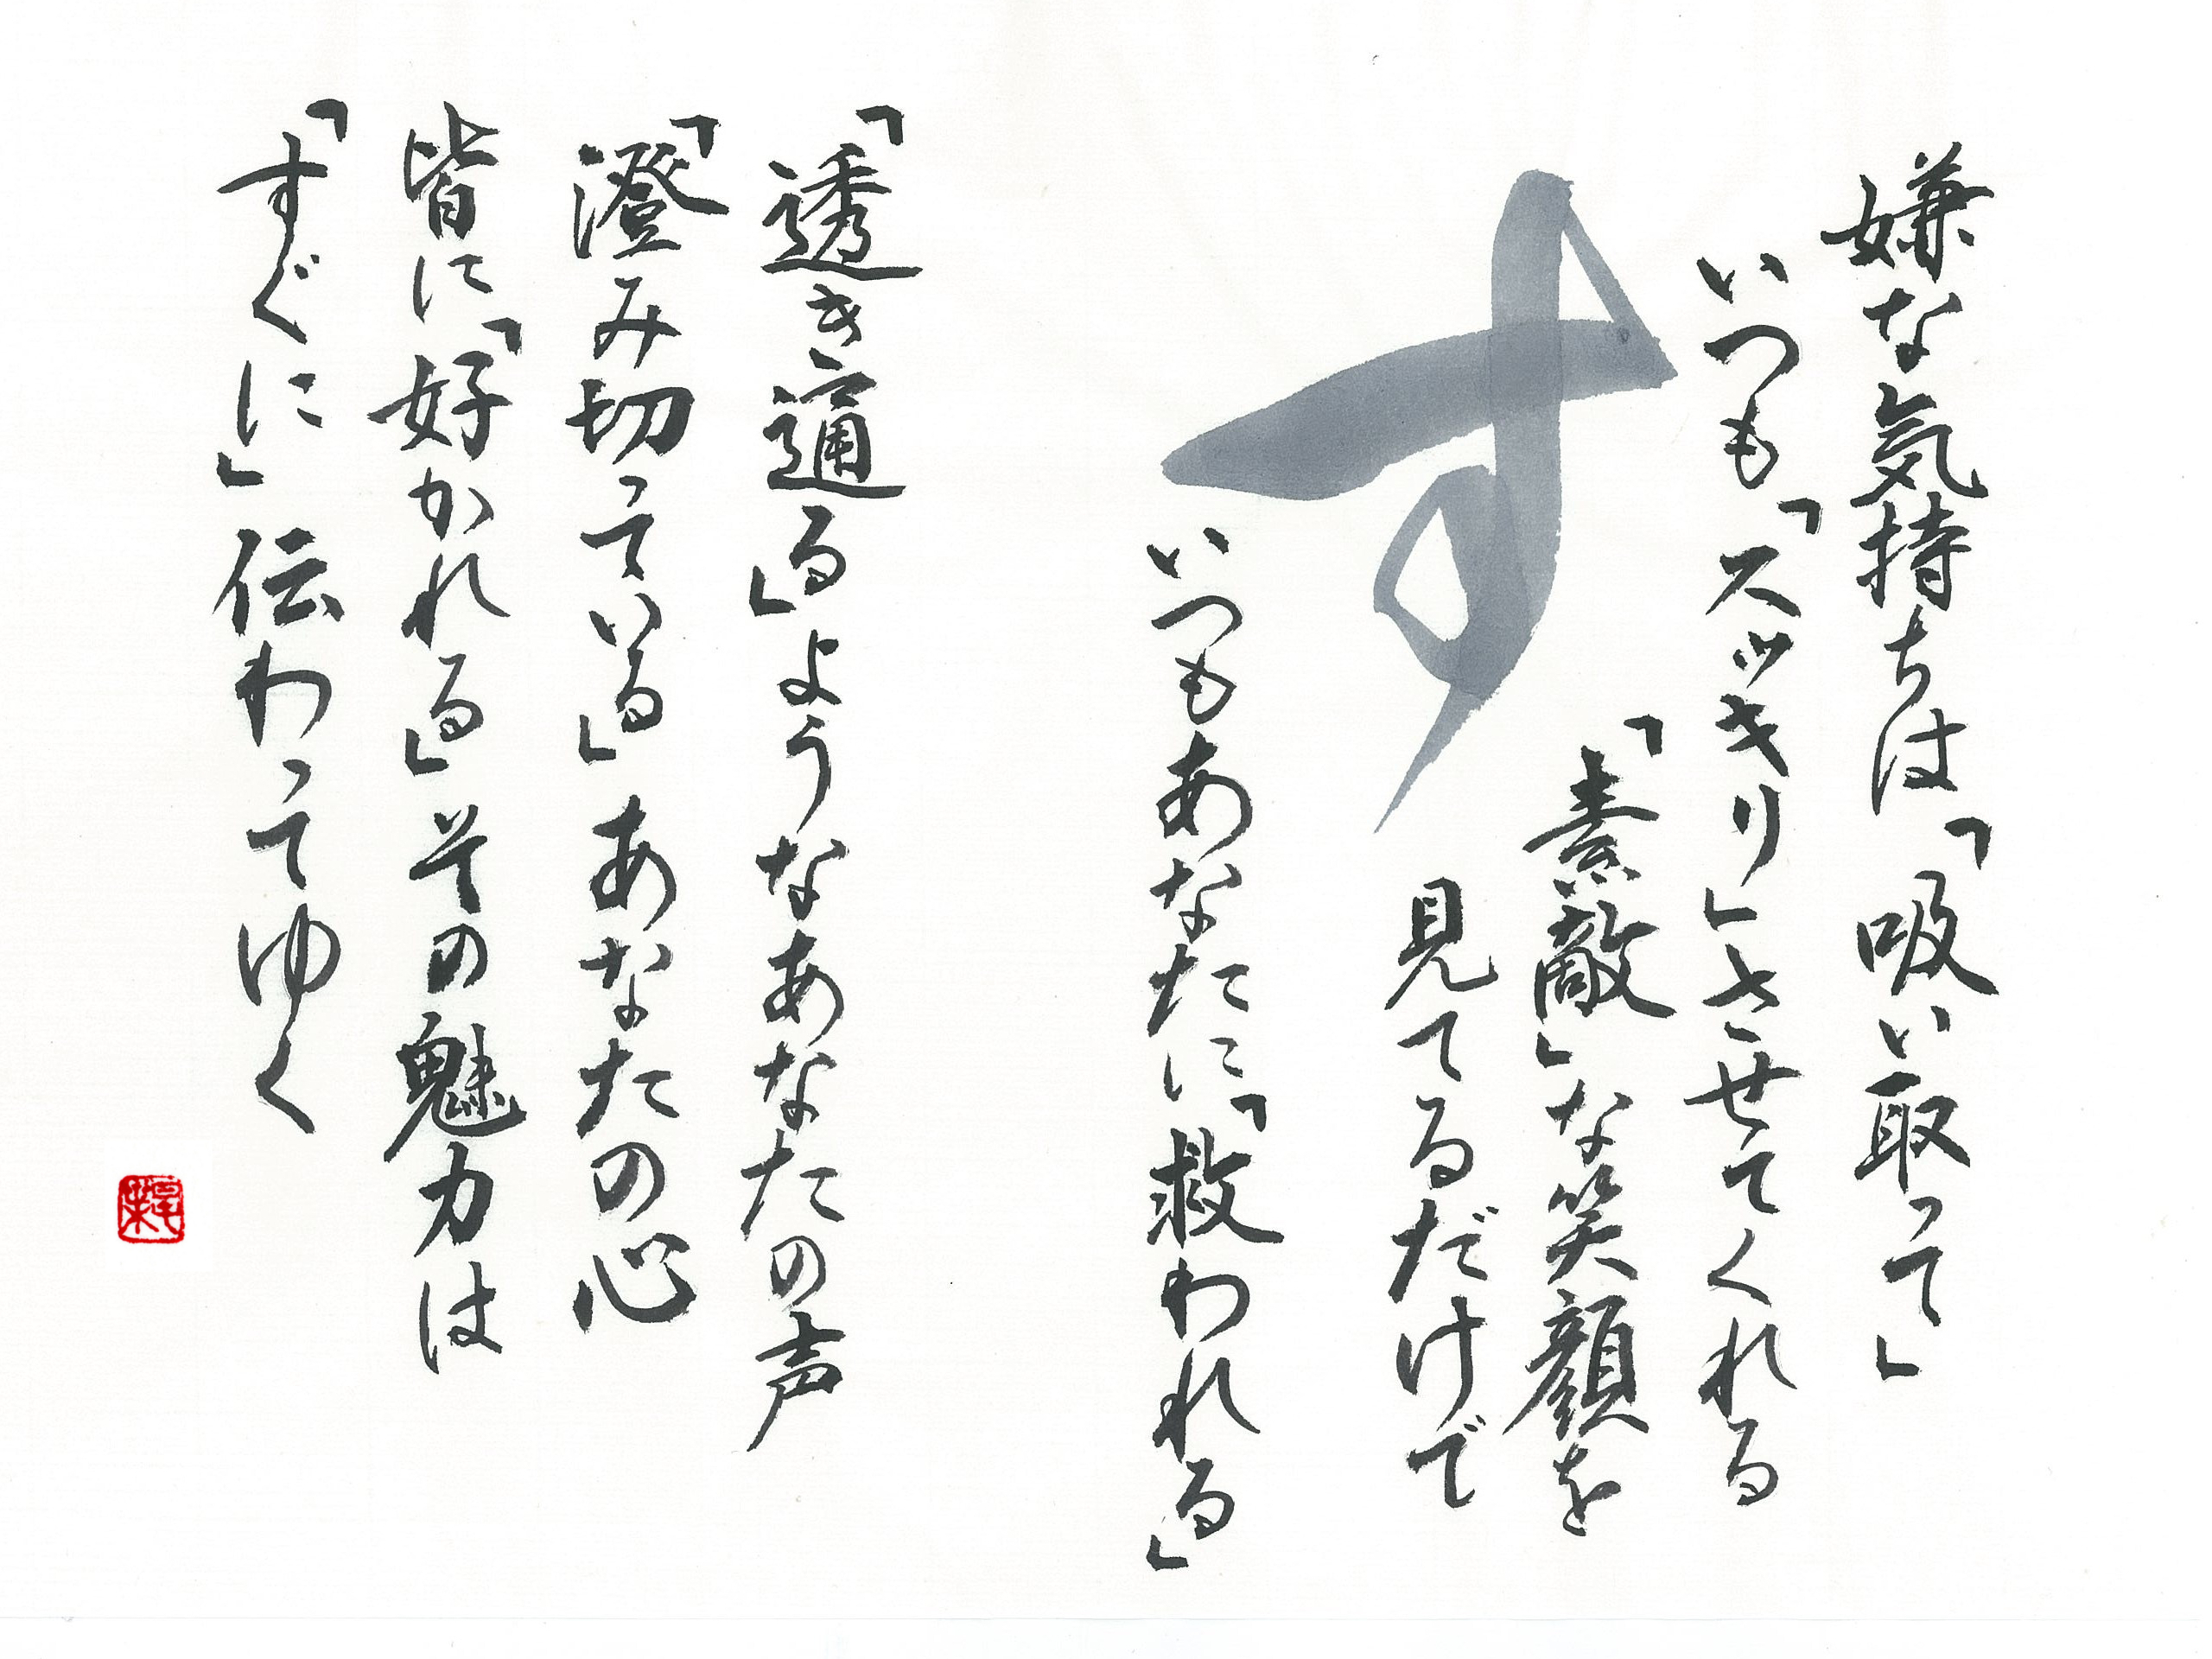 嫌な気持ちは「吸い取って」
いつも「スッキリ」させてくれる
「素敵」な笑顔を
見てるだけで
いつもあなたに「救われる」
す
「透き通る」ようなあなたの声
「澄み切っている」あなたの心
皆に「好かれる」その魅力は
「すぐに」伝わってゆく